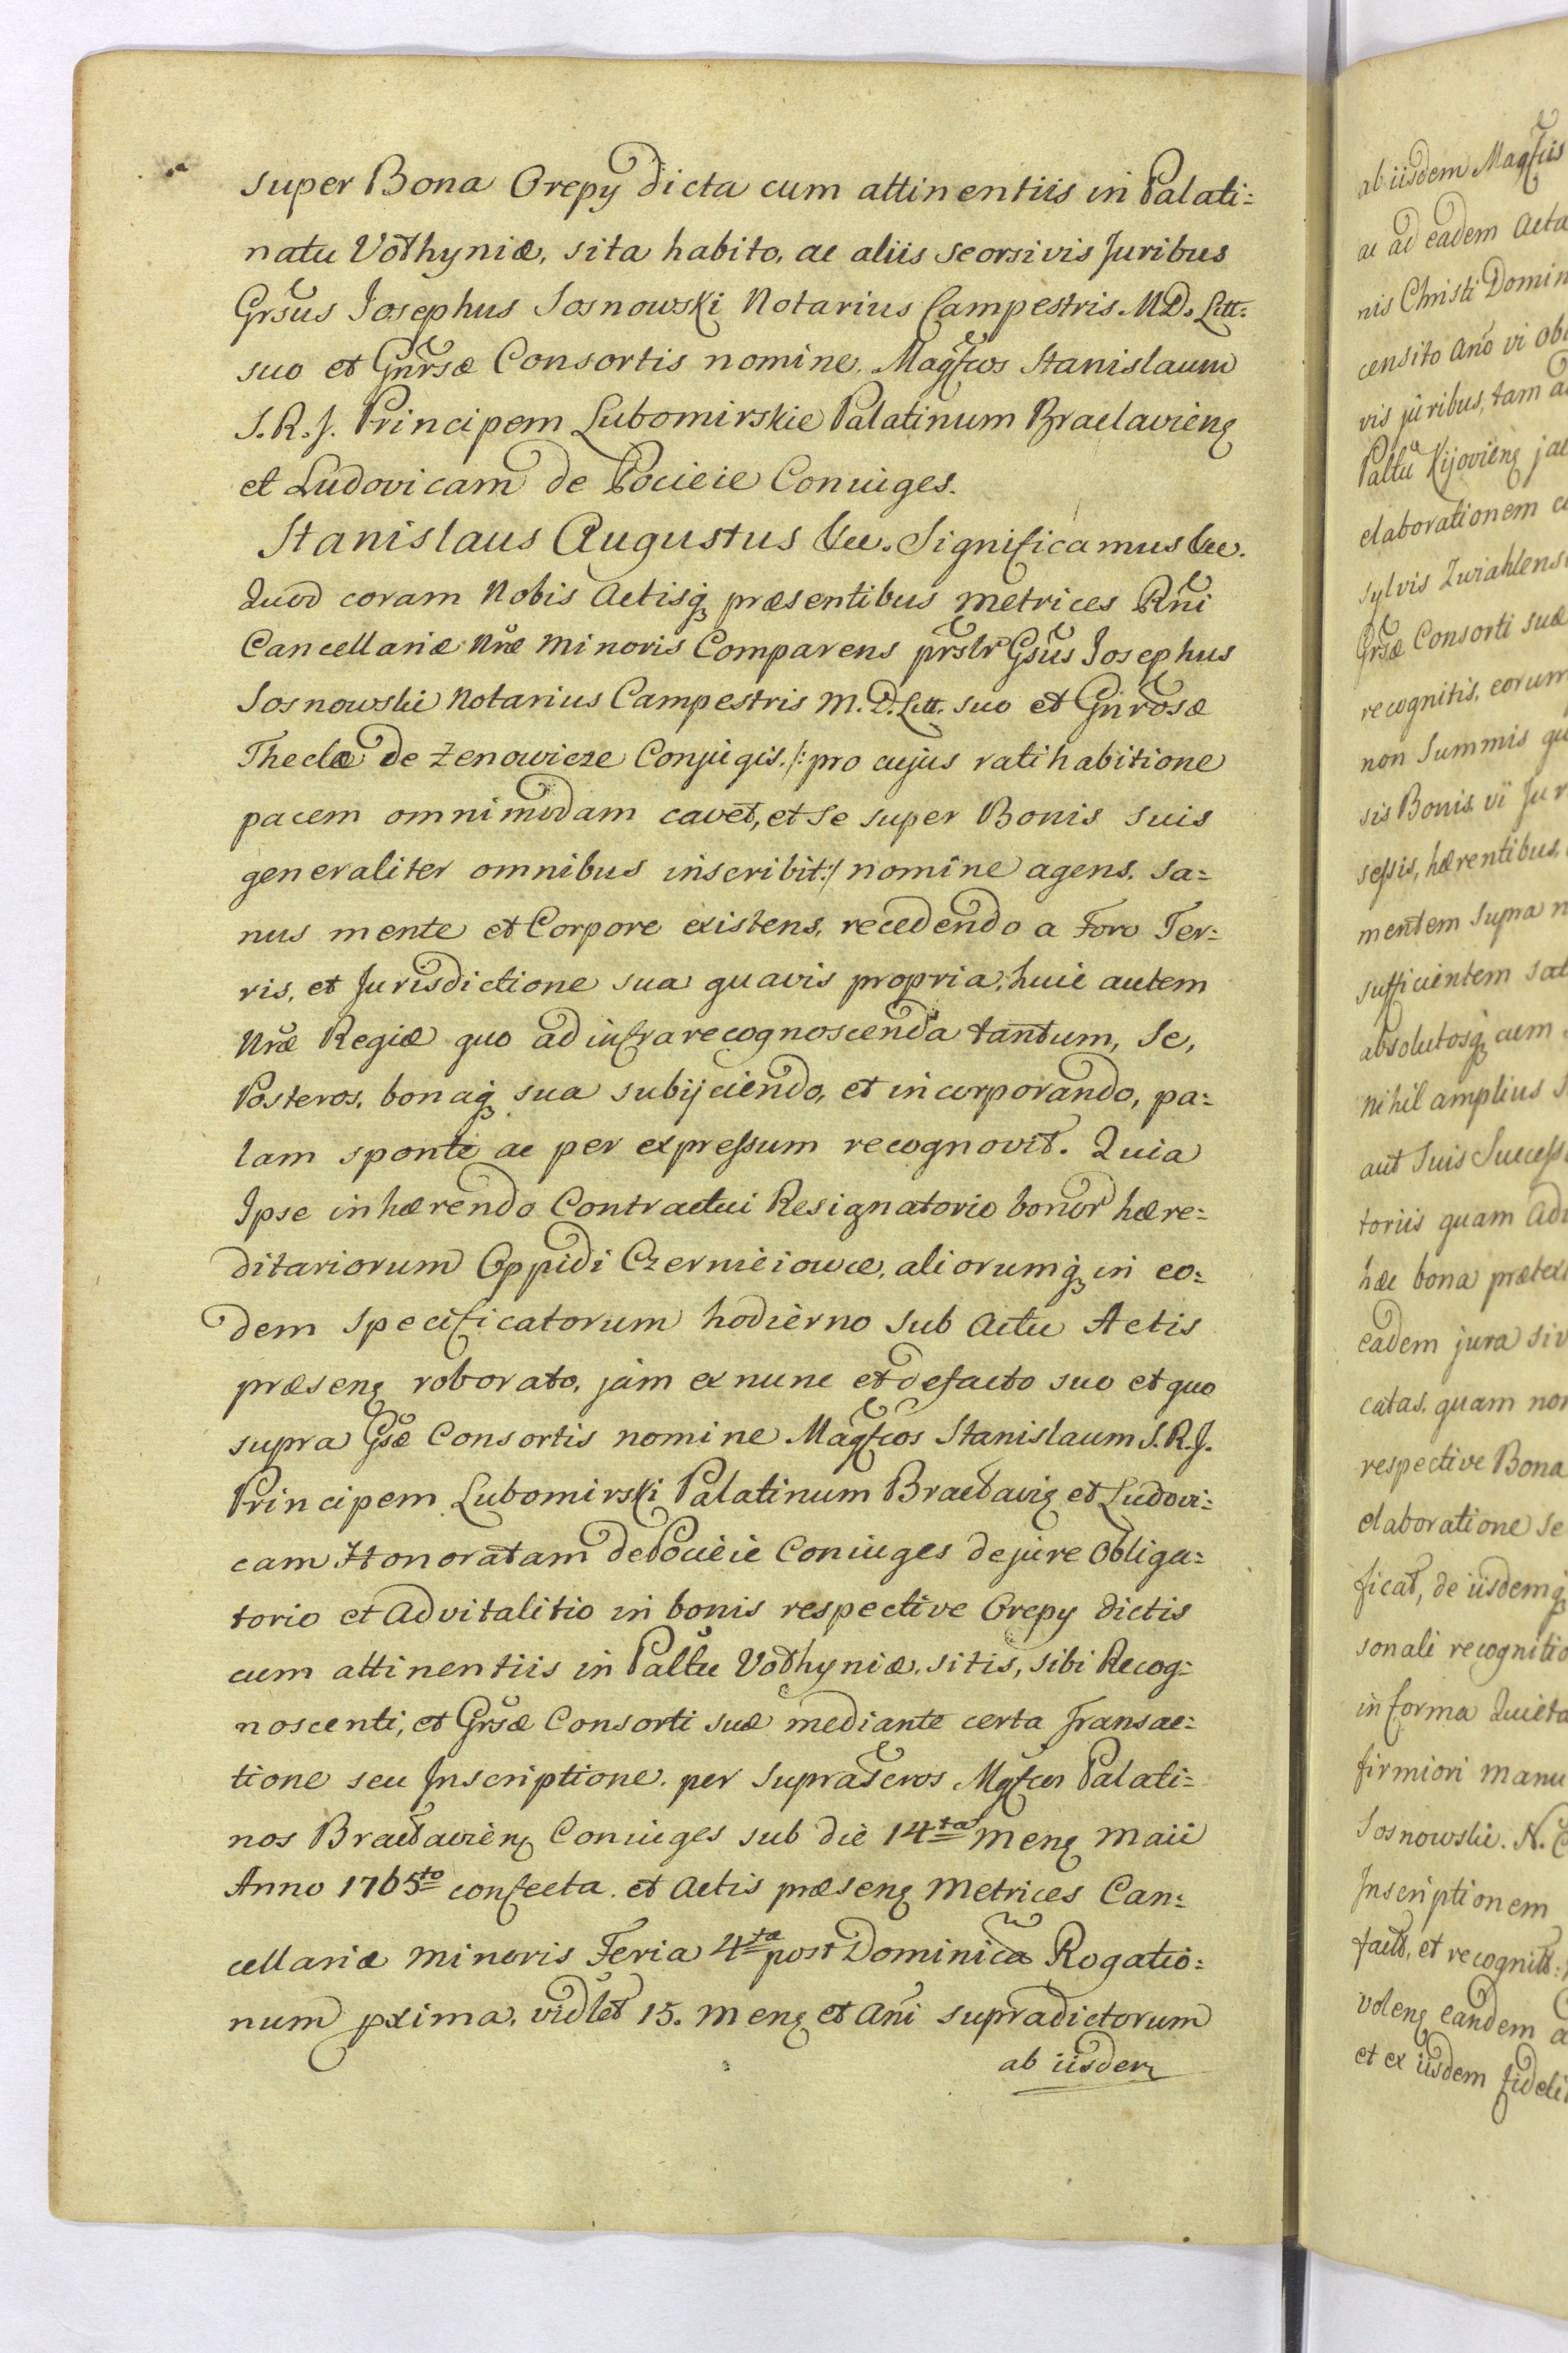 super Bona Orepy dicta cum attinentiis in Palati=
natu Vołhyniæ, sita habito, ac aliis seorsivis Juribus
Grsus Josephus Sosnowski Notarius Campestris M.D. Litt.
suo et Gnrsæ Consortis nomine. Magfcos Stanislaum
S.R.J. Principem Lubomirskie Palatinum Braclavieng
et Ludovicam de Pocieie Coniuges.
Stanislaus Augustus &cc. Significamus &cc.
Quod coram Nobis Actisq præsentibus Metrices Rni
Cancellariæ Nræ Minoris Comparens prslr Gsus Josephus
Sosnowski Notarius Campestris M.D. Litt. suo et Gnrosæ
Theclæ de Zenowicze Conjugis. /: pro cujus ratihabitione
pacem omnimodam cavet, et se super Bonis suis
generaliter omnibus inscribit :/ nomine agens. Sa=
nus mente et Corpore existens, recedendo a Foro Ter=
ris, et Jurisdictione sua quavis propria; huic autem
Nræ Regiæ quo ad infrarecognoscenda tantum, Se,
Posteros, bonaq sua subijciendo, et incorporando, pa=
lam sponte ac per expressum recognovit. Quia
Ipse inhærendo Contractui Resignatorio bonor hære=
ditariorum Oppidi Czerniejowce, aliorumq in eo=
dem specificatorum hodierno sub Actu Actis
præseng roborato, jam ex nunc et defacto suo et quo
supra Gsæ Consortis nomine Magfcos Stanislaum S.R.J.
Principem Lubomirski Palatinum Bracłavig et Ludovi=
cam Honoratam de Pocieie Coniuges de jure Obliga=
torio et Advitalitio in bonis respective Orepy dictis
cum attinentiis in Paltu Vołhyniæ. sitis, sibi Recog=
noscenti, et Grsæ Consorti suæ mediante certa Transac=
tione seu Inscriptione. per suprascros Mgfcos Palati=
nos Bracłavieng Coniuges sub die 14ta Meng Maii
Anno 1765to confecta. et Actis præseng Metrices Can=
cellariæ Minoris Feria 4ta post Dominica Rogatio=
num pxima, vidlet 15. Meng et Ani supradictorum
ab iisdem
ab iisdem Magfcis
ac ad eadem Acta
nis Christi Domin
censito Ano vi Ob
vis juribus, tam
Paltu Kijovieng
elaborationem
sylvis Zwiahlens
Grsæ Consorti suæ
recognitis, eorum
non Summis
sis Bonis vi Jur
sessis, hærentibus.
mentem supra
sufficientem
absolutosq cum
nihil amplius
aut suis Success
toriis quam Adv
hæc bona
eadem jura
catas, quam non
respective Bona
elaboratione se
ficat, de iisdemq
sonali recognitio
in forma Quieta
firmiori manu
Sosnowski. N.
Inscriptionem
fact, et recognit
voleng eandem
et ex iisdem